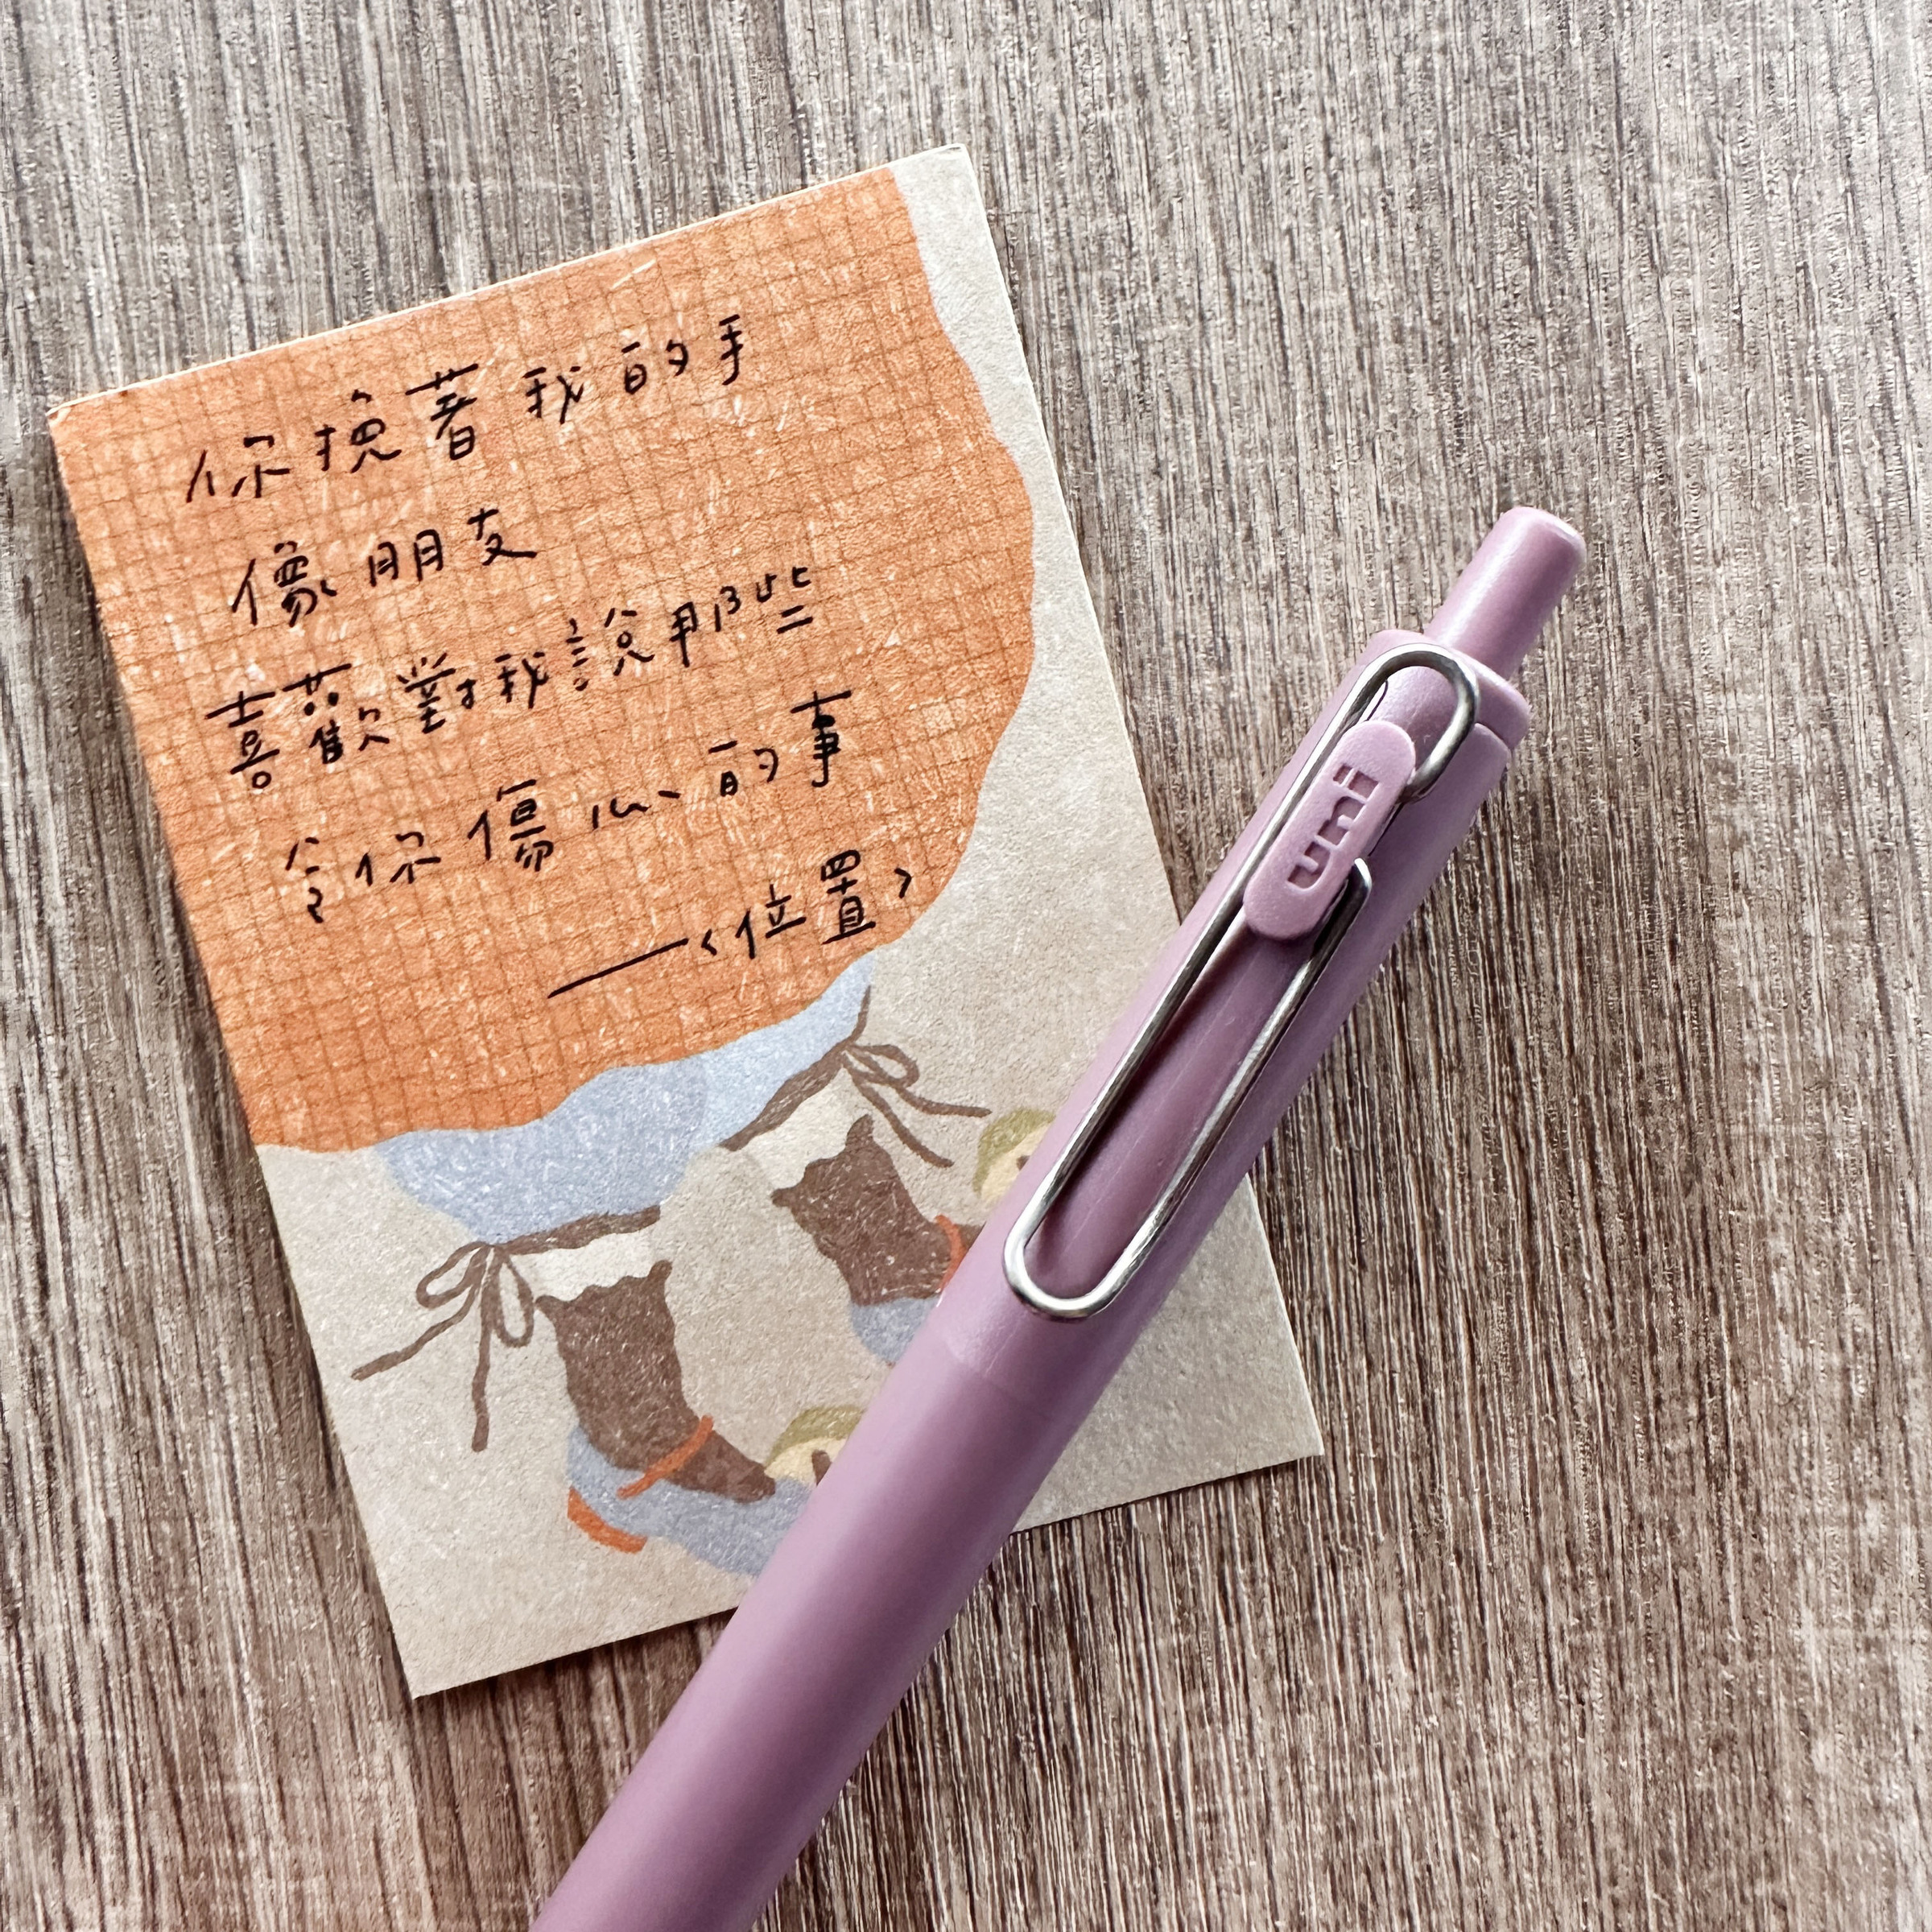 你挽著我的手
像朋友
喜歡對我說那些
令你傷心的事
——〈位置〉
uni